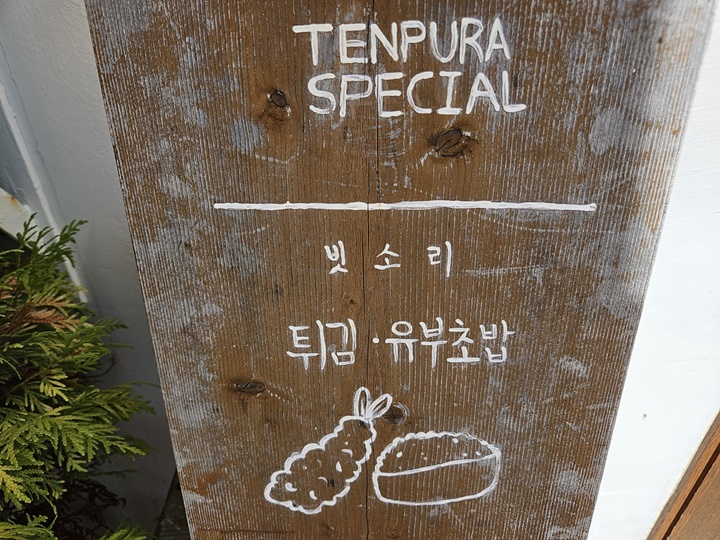 TENPURA
SPECIAL
빗소리
튀김·유부초밥